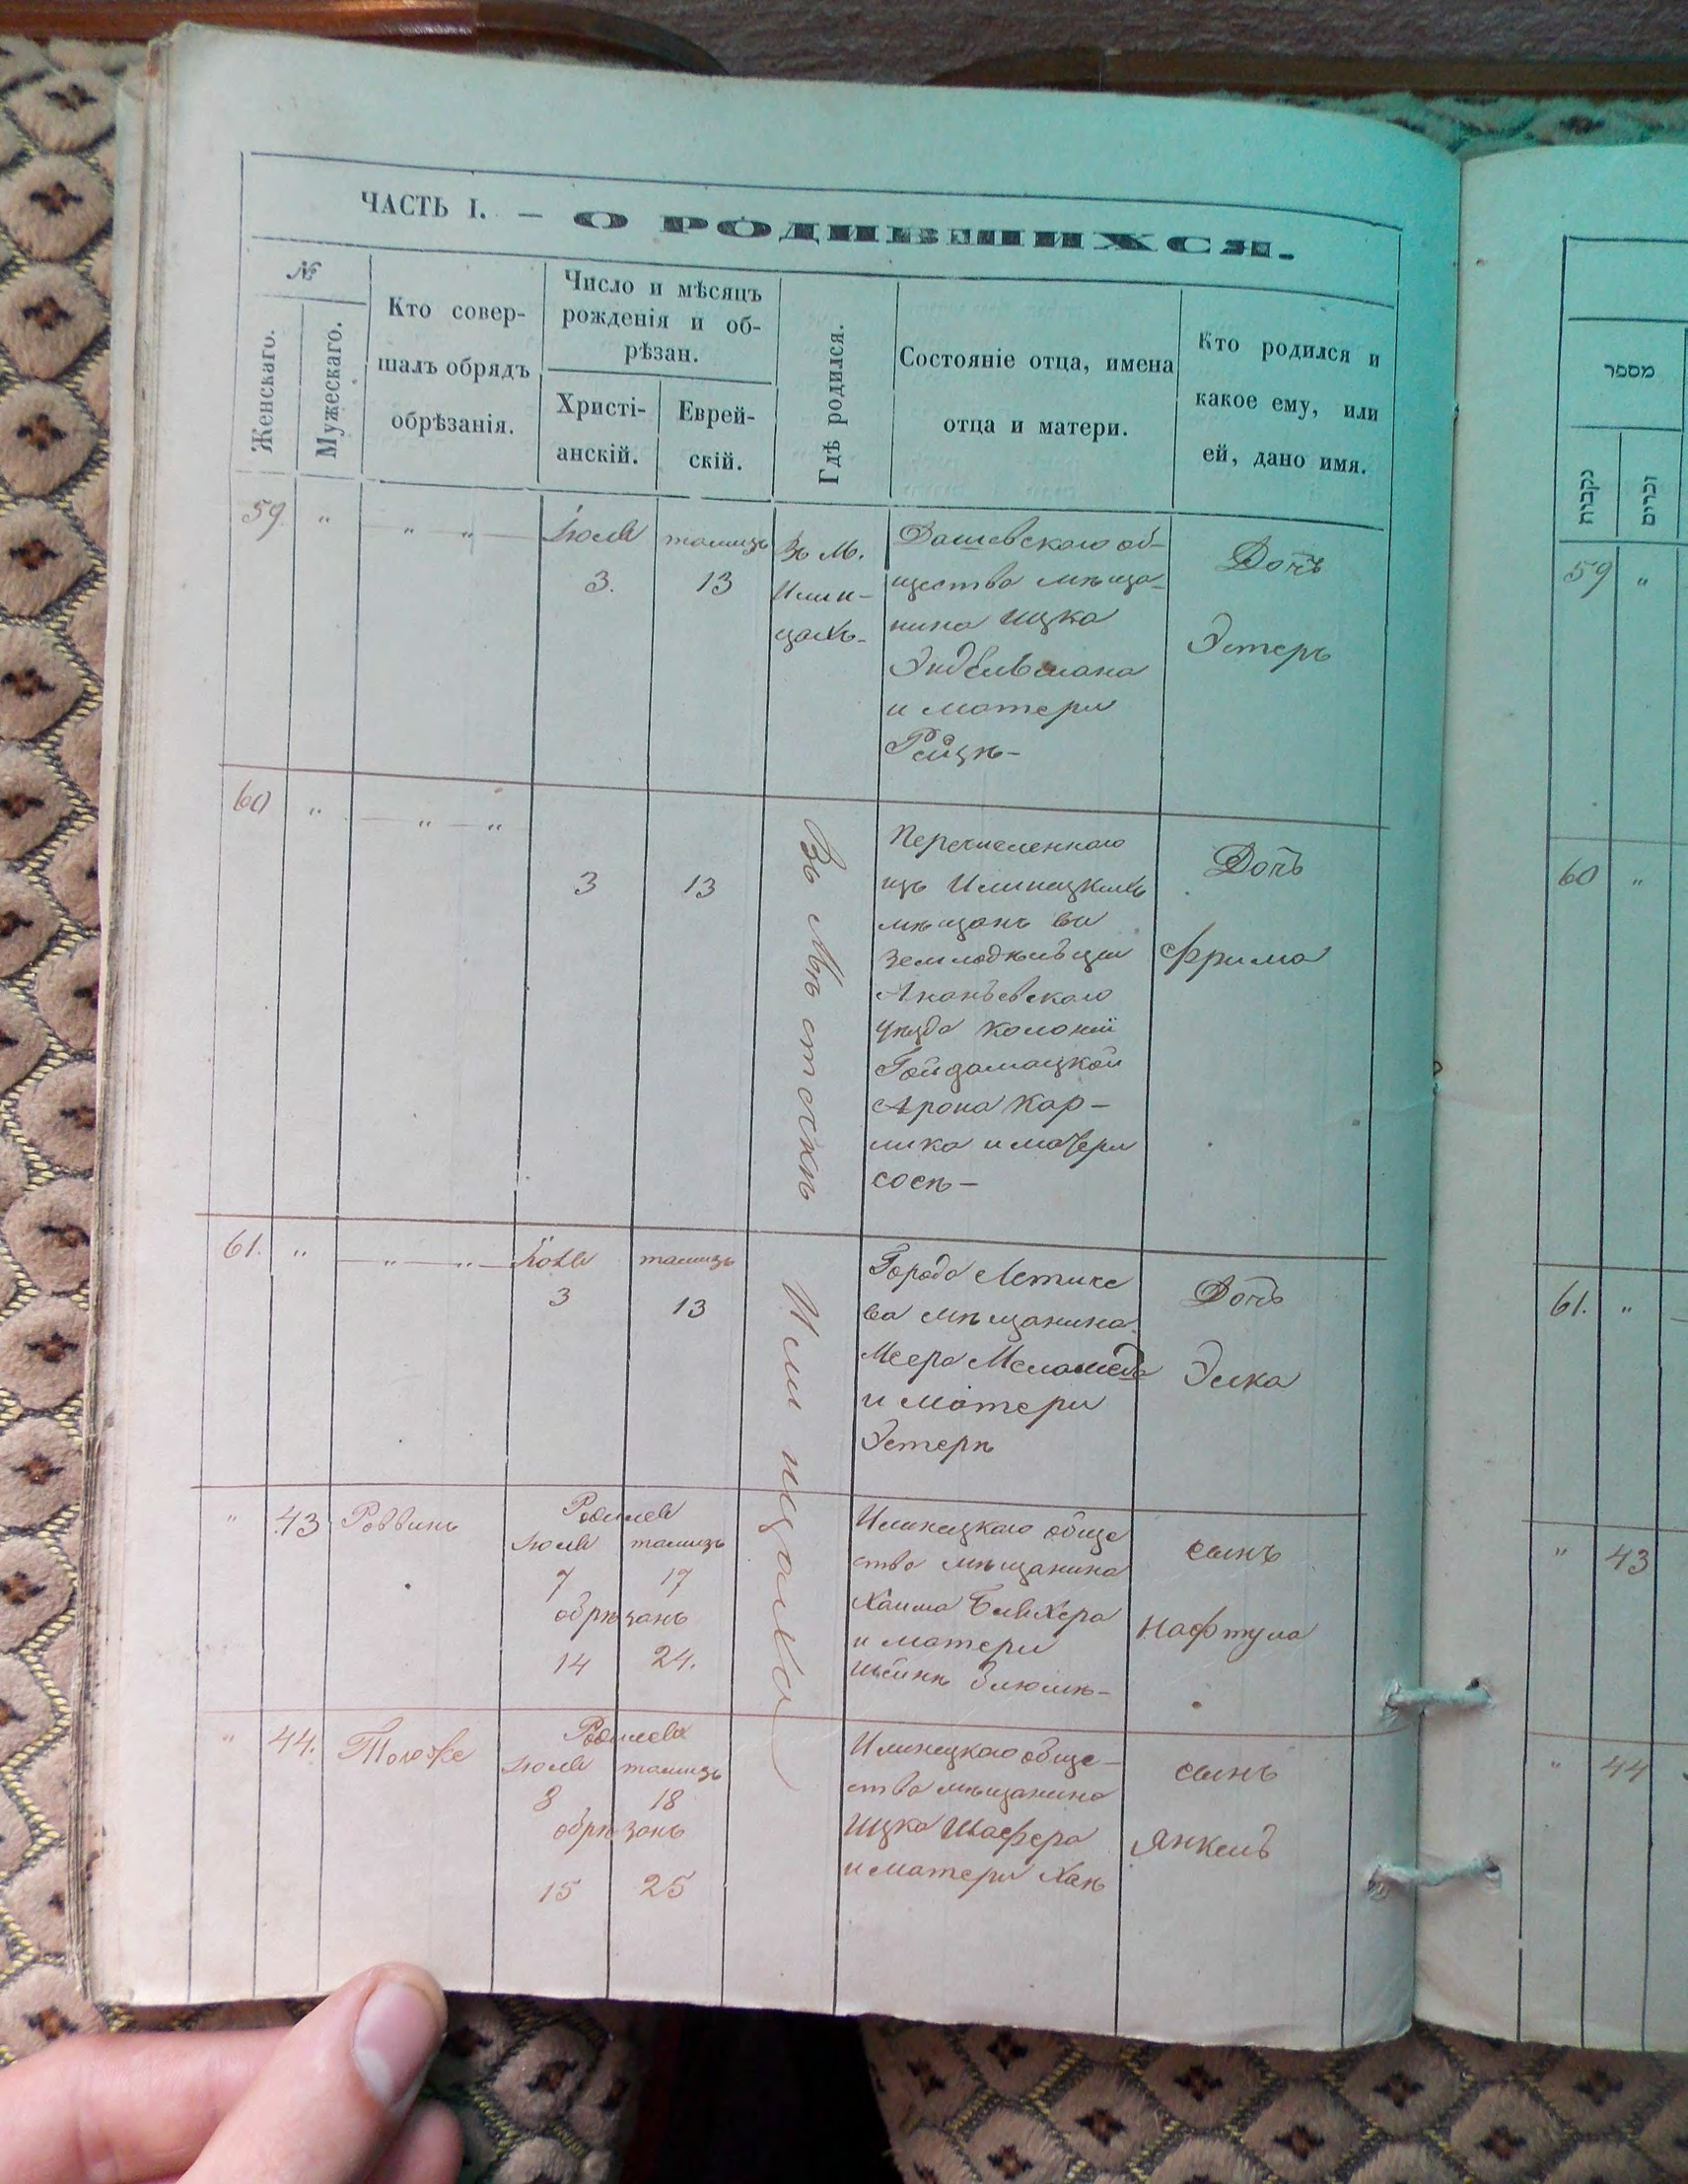 ЧАСТЬ I. — О РОДИВШИХСЯ.
№
Женскаго.
Мужескаго.
Кто совер-
шалъ обрядъ
обрѣзанія.
Число и мѣсяцъ
рожденія и об-
рѣзан.
Христі-
анскій.
Еврей-
скій.
Гдѣ родился.
Состояніе отца, имена
отца и матери.
Кто родился и
какое ему, или
ей, дано имя.
59 " " "
Іюля
3.
тамизъ
13
Въ М.
Илин-
цахъ-
Дашевскаго об-
щества мѣща-
нина Ицка
Эндельмана
и матери
Рейзѣ-
Дочь
Эстеръ
60 " " "
3
13
Въ Мѣстечкѣ
Перечисленнаго
изъ Илинецкихъ
мѣщанъ въ
земледѣльцы
Ананьевскаго
уѣзда колоніи
Гайдамацкой
Арона Кар-
лика и матери
Сосѣ-
Дочь
Фрима
61. " " "
Іюля
3
тамизъ
13
Илинцахъ
Города Летиче
ва мѣщанина
Меера Меламеда
и матери
Эстери
Дочь
Элка
" 43 Раввинъ
Родился
Іюля тамизъ
7 17
обрѣзанъ
14 24.
Илинецкаго обще
ства мѣщанина
Хаима
и матери
сынъ
Нафтула
" 44. Тотъ же
Родился
Іюля тамизъ
8 18
обрѣзанъ
15 25
Илинецкаго обще-
ства мѣщанина
Ицка Шафера
и матери Хаѣ
сынъ
Янкель
מספר
נקבות
זכרים
59 "
60 "
61. "
" 43
" 44